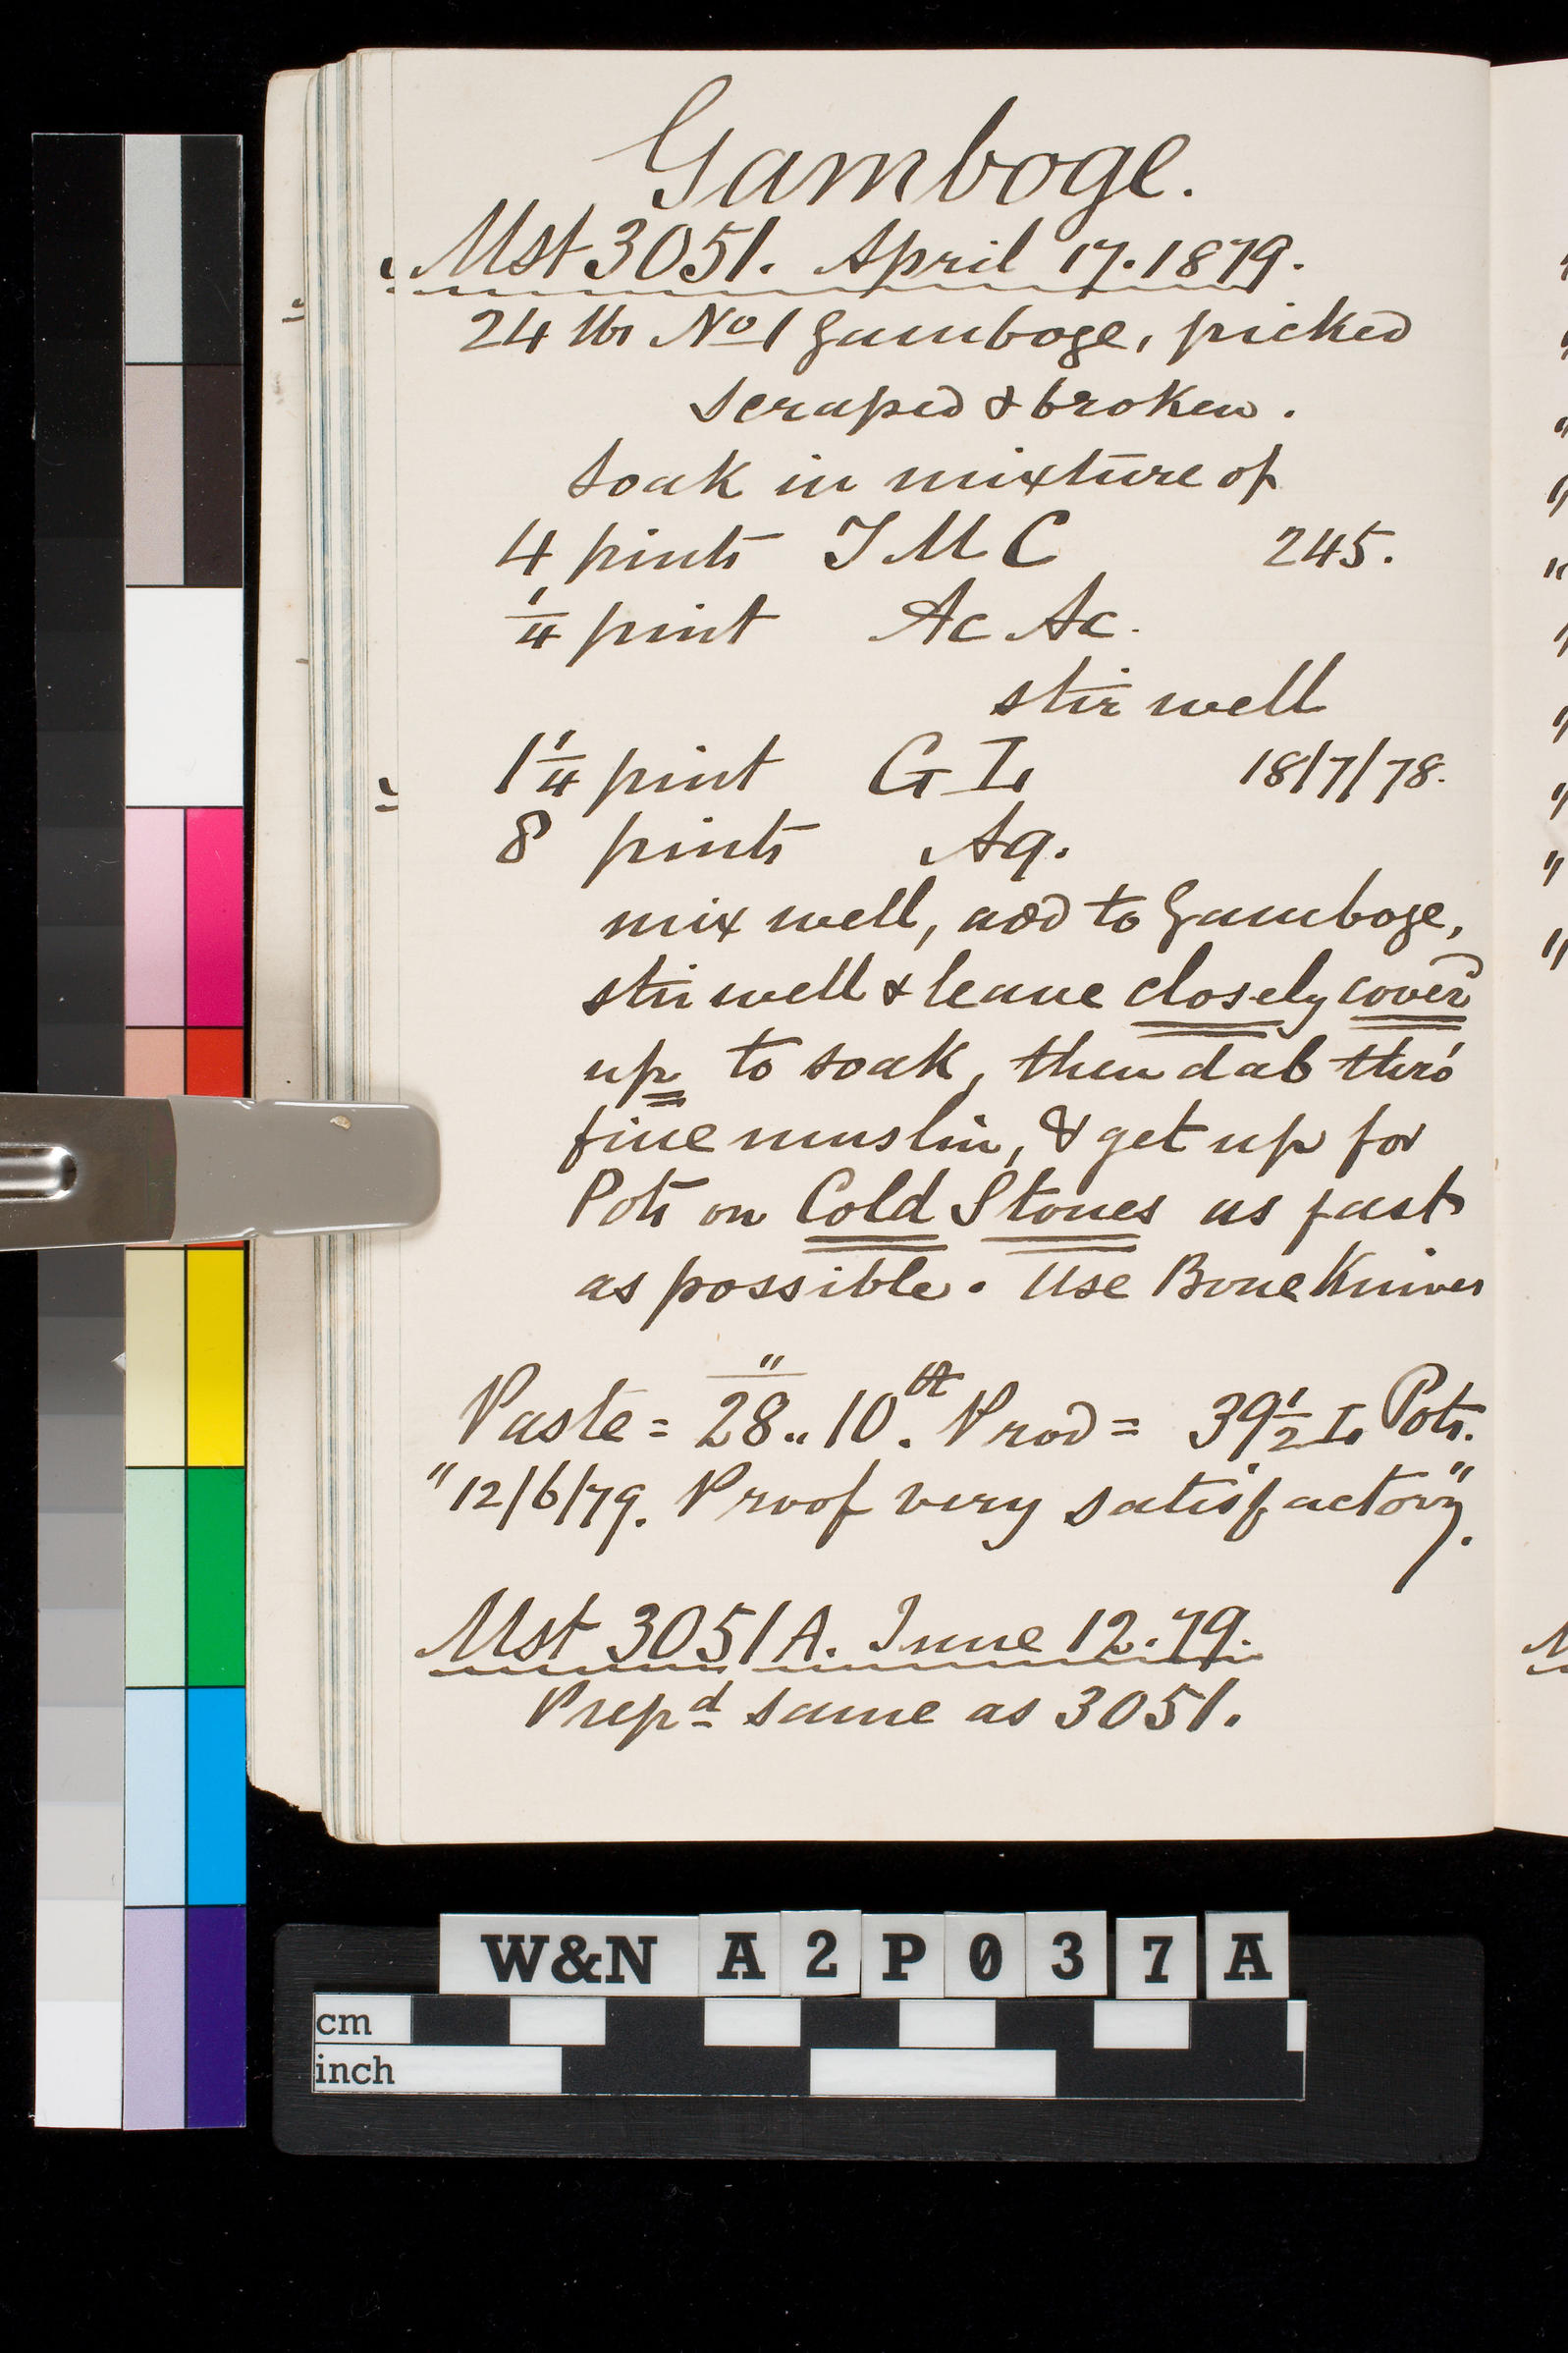 Gamboge.
Mst 3051. April 17. 1879.
24 lbs No 1 Gamboge, picked
scraped & broken.
Soak in mixture of
4 pints I M C 245.
1/4 pint Ac Ac.
stir well
1 1/4 pint G I 18/7/78.
8 pints Aq.
mix well, add to Gamboge,
stir well & leave closely cover'd
up to soak, then dab thro'
fine muslin, & get up for
Pots on Cold Stones as fast
as possible. Use Bone Knives
Paste = 28 .. 10. Prod = 39 1/2 Pots.
"12/6/79. Proof very satisfactory".
Mst 3051 A. June 12. 79.
Prepd same as 3051.
W&N A2P037A
cm
inch